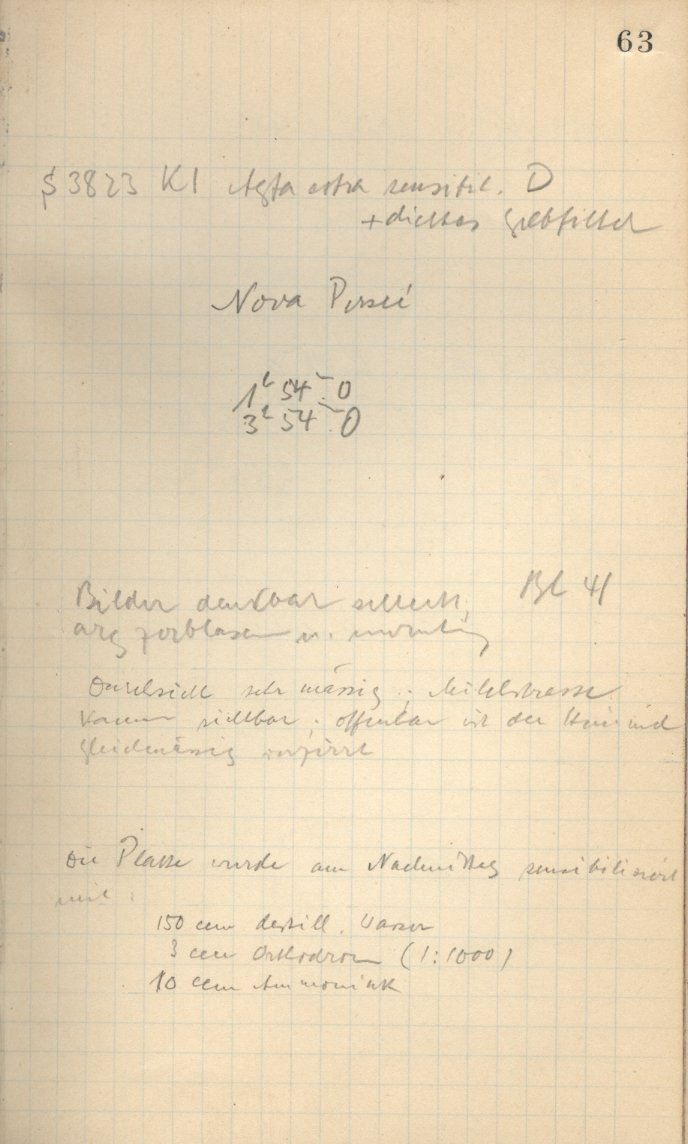 63
3823 Kl Agfa extra sensibil. D
+ dichtes Gelbfilter
Nova Persei
1h 54m.0
3h 54m.0
Bl 41
Bilder denkbar schlecht,
arg zerblasen u. unruhig
Durchsicht sehr mässig; Milchstrasse
kaum sichtbar; offenbar ist der Himmel
gleichmässig
Die Platte wurde am Nachmittag sensibilisiert
mit:
150 ccm destill. Wasser
3 ccm Orthochrom (1:1000)
10 ccm Ammoniak